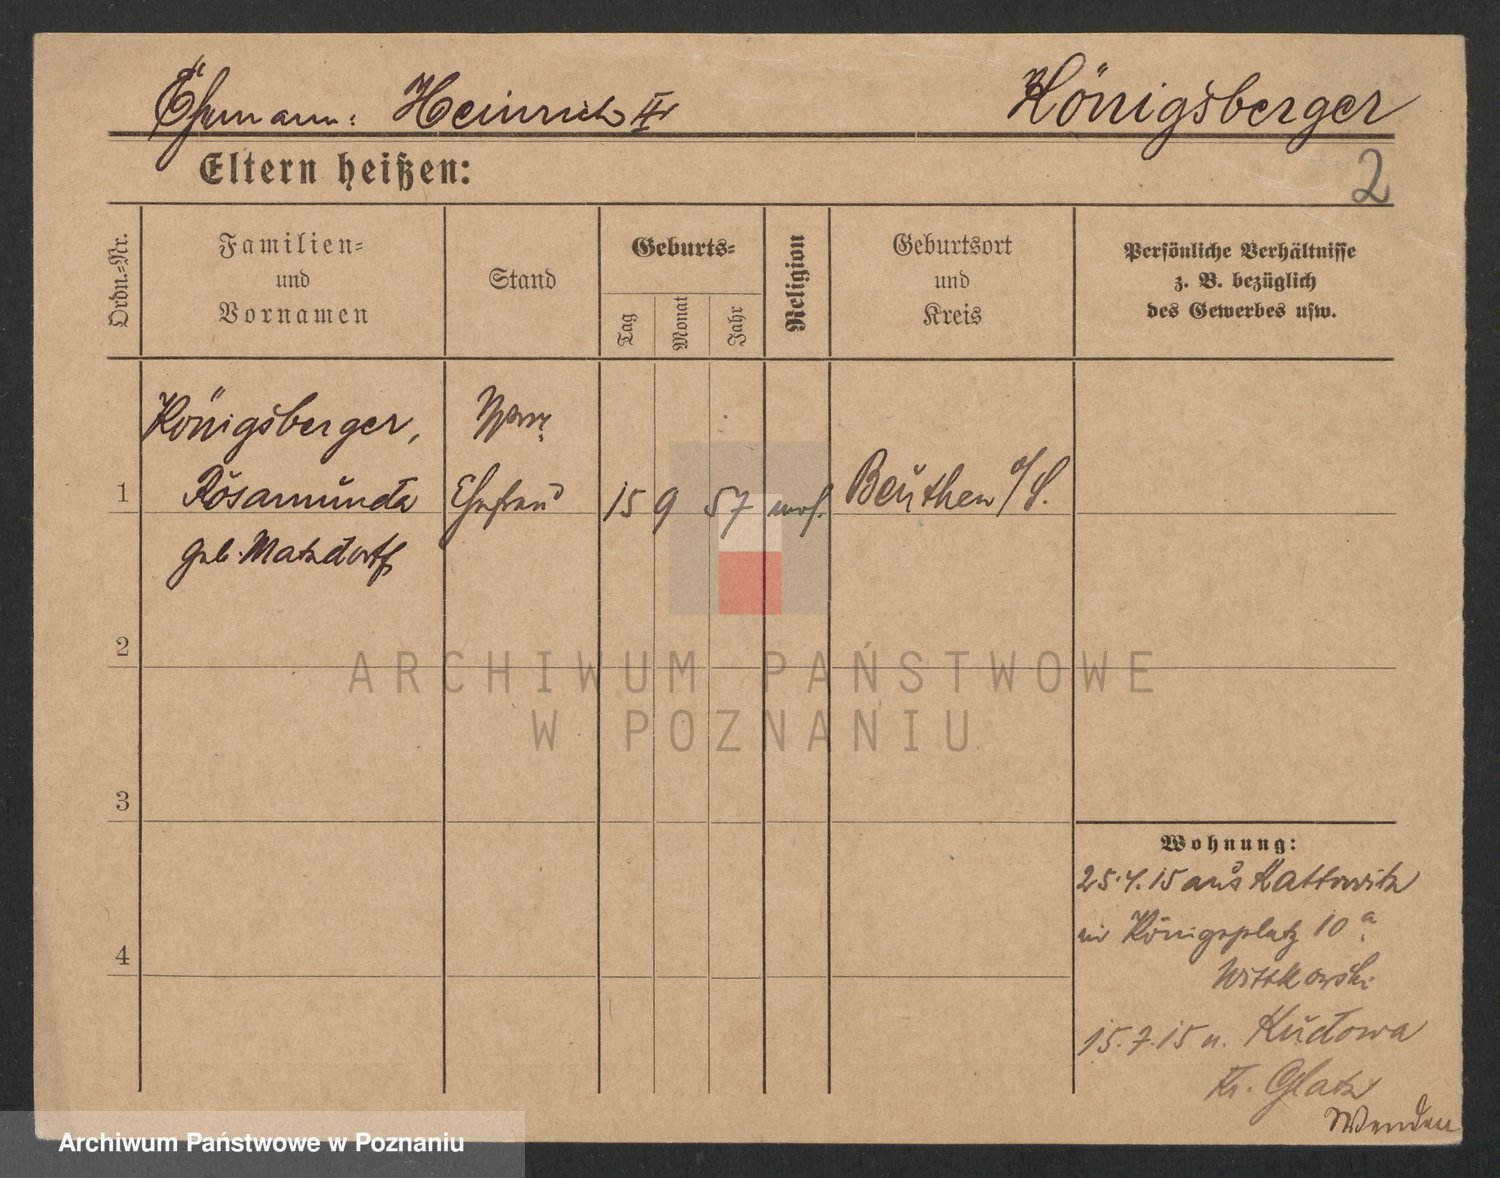 Ehemann: Heinrich II Königsberger
Eltern heißen:
2
Ordn.-Nr.
Familien-
und
Vornamen
Stand
Geburts-
Tag
Monat
Jahr
Religion
Geburtsort
und
Kreis
Persönliche Verhältnisse
z. B. bezüglich
des Gewerbes usw.
Königsberger,
1 Rosamunda Ehefrau 15 9 57 mos. Beuthen o/S.
geb. Matzdorff
2
3
4
Wohnung:
25.4.15 aus Kattowitz
Königsplatz 10a
Wittkowski
15.7.15 n. Kudowa
Kr. Glatz
Wenden
ARCHIWUM PAŃSTWOWE
W POZNANIU
Archiwum Państwowe w Poznaniu